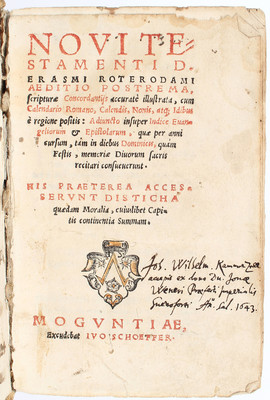 NOVI TE-
STAMENTI D.
ERASMI ROTERODAMI
AEDITIO POSTREMA,
scripturæ Concordantijs accuratè illustrata, cum
Calendario Romano, Calendis, Nonis, atq; Idibus
è regione positis: Adiuncto insuper Indice Euan-
geliorum & Epistolarum, quæ per anni
cursum, tàm in diebus Dominicis, quàm
Festis, memoriæ Diuorum sacris
recitari consueuerunt.
HIS PRAETEREA ACCES-
SERVNT DISTICHA
quædam Moralia, cuiuslibet Capi-
tis continentia Summam.
Jos. Wilhelm.
ex dono Dn. Jonæ
1643.
MOGVNTIAE,
Excudebat IVO SCHOEFFER.